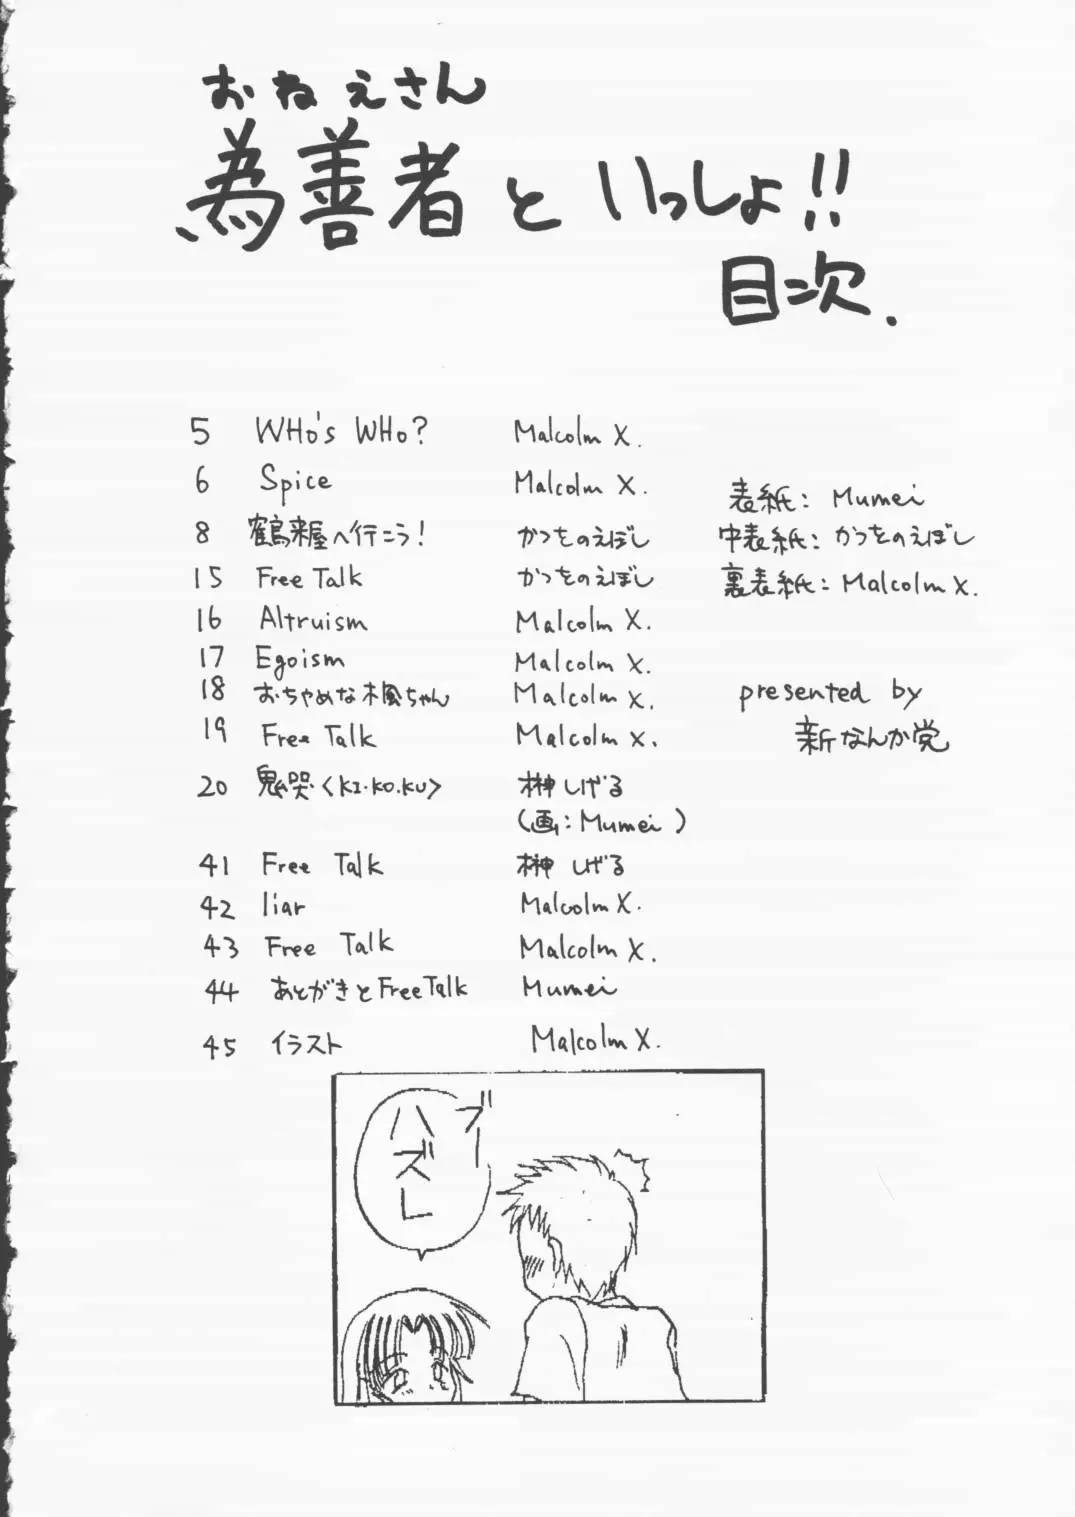 おねえさん
偽善者といっしょ!!
目次.
5 WHo's WHo? Malcolm X.
6 Spice Malcolm X.
8 鶴来屋へ行こう! かつをのえぼし
15 Free Talk かつをのえぼし
16 Altruism Malcolm X.
17 Egoism Malcolm X.
18 おちゃめな楓ちゃん Malcolm X.
19 Free Talk Malcolm X.
20 鬼哭<KI・KO・KU> 榊しげる
(画:Mumei)
41 Free Talk 榊しげる
42 liar Malcolm X.
43 Free Talk Malcolm X.
44 あとがきとFree Talk Mumei
45 イラスト Malcolm X.
表紙: Mumei
中表紙: かつをのえぼし
裏表紙: Malcolm X.
presented by
新なんか党
ブー
ハズレ